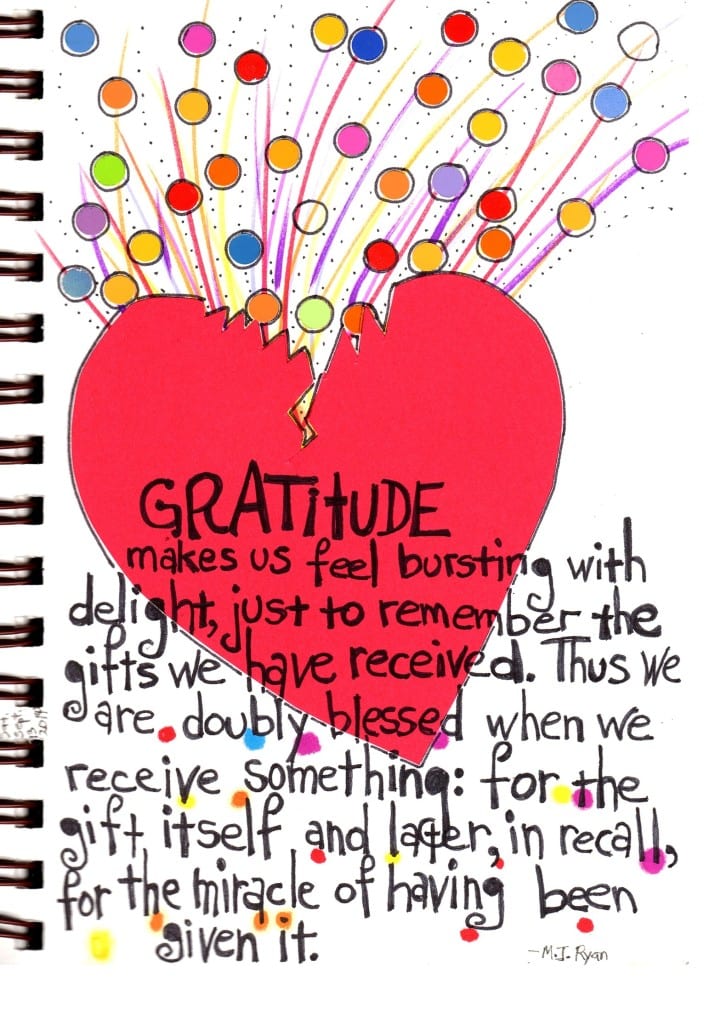 GRATITUDE
makes us feel bursting with
delight, just to remember the
gifts we have received. Thus we
are doubly blessed when we
receive something: for the
gift itself and later, in recall,
for the miracle of having been
given it.
-M.J. Ryan